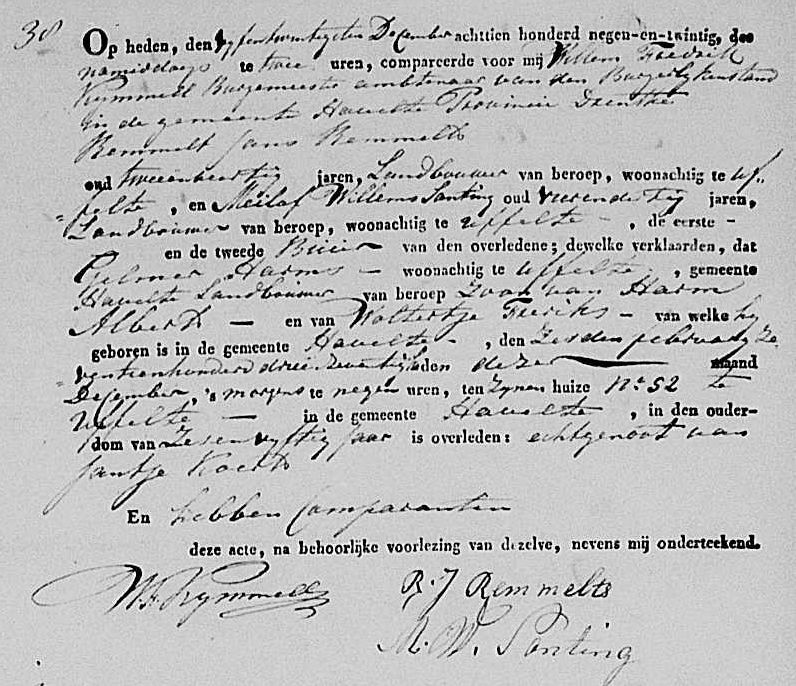 38
Op heden, den vyfentwintigsten December achttien honderd negen-en-twintig, des
namiddags te twee uren, compareerde voor mij Willem Fredrik
Kymmell Burgemeester ambtenaar van den Burgerlyken stand
in de gemeente Havelte Provincie Drenthe
Remmelt Jans Remmelts
oud tweeenveertig jaren, Landbouwer van beroep, woonachtig te Uf-
felte, en Meilof Willems Santing oud vierendertig jaren,
Landbouwer van beroep, woonachtig te Uffelte, de eerste -
en de tweede Buur van den overledene; dewelke verklaarden, dat
Gelmer Harms - woonachtig te Uffelte, gemeente
Havelte Landbouwer van beroep zoon van Harm
Alberts - en van Woltertje Freriks - van welke hy
geboren is in de gemeente Havelte -, den zesden february ze
ventienhonderd drieenzeventig den dezer maand
December, 's morgens te negen uren, ten zynen huize No 52 te
Uffelte - in de gemeente Havelte, in den ouder-
dom van zesenvyftig jaar is overleden: echtgenoot van
Jantje Koerts
En hebben Comparanten
deze acte, na behoorlijke voorlezing van dezelve, nevens mij onderteekend.
W.F. Kymmell R. J Remmelts
M. W. Santing